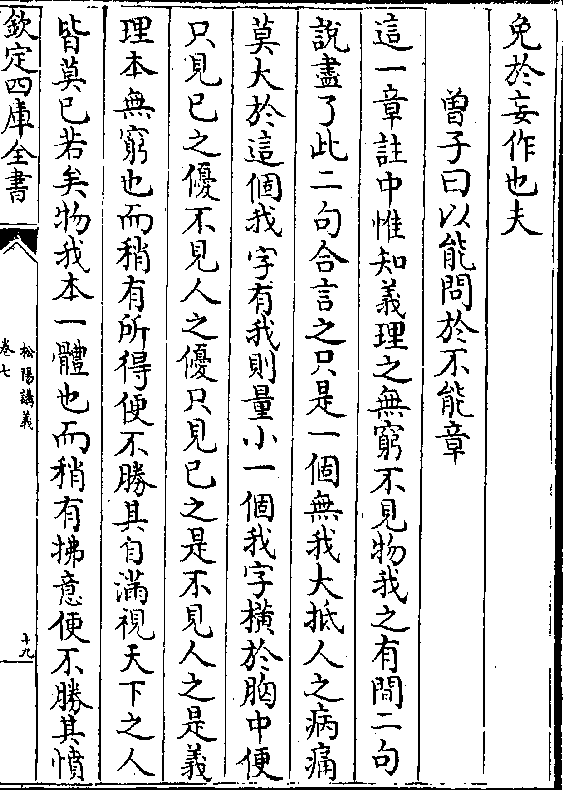 免於妄作也夫
曽子曰以能問於不能章
這一章註中惟知義理之無窮不見物我之有間二句
說盡了此二句合言之只是一個無我大抵人之病痛
莫大於這個我字有我則量小一個我字橫於胸中便
只見已之優不見人之優只見已之是不見人之是義
理本無窮也而稍有所得便不勝其自滿視天下之人
皆莫已若矣物我本一體也而稍有拂意便不勝其憤
欽定四庫全書
松陽講義
卷七
十九